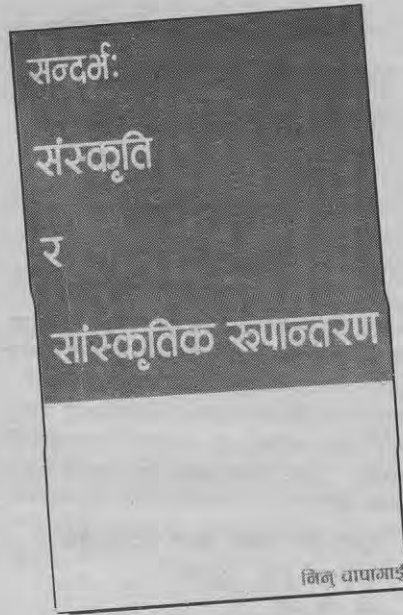 सन्दर्भः
संस्कृति
र
सांस्कृतिक रुपान्तरण
निनु चापागाईं